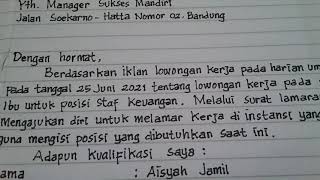 Yth. Manager Sukses Mandiri
Jalan Soekarno - Hatta Nomor 02. Bandung
Dengan hormat,
Berdasarkan iklan lowongan kerja pada harian um
pada tanggal 25 Juni 2021 tentang lowongan kerja pada
Ibu untuk posisi Staf Keuangan. Melalui surat lamara
Mengajukan diri untuk melamar kerja di instansi yang
guna mengisi posisi yang dibutuhkan saat ini.
Adapun kualifikasi saya :
ama : Aisyah Jamil